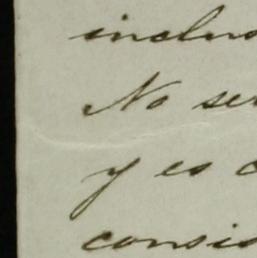 inclus
No ser
y es c
consis